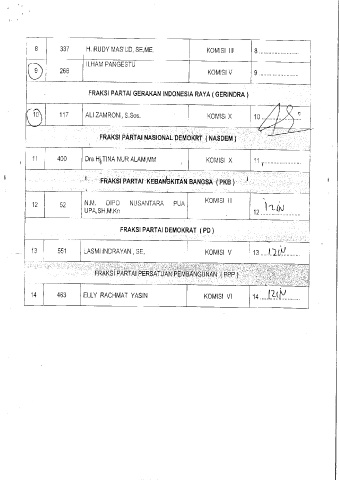 8 337 H. RUDY MAS'UD, SE,ME. KOMISI III 8 ................
9 266 ILHAM PANGESTU KOMISI V 9 ................
FRAKSI PARTAI GERAKAN INDONESIA RAYA ( GERINDRA )
10 117 ALI ZAMRONI, S.Sos. KOMISI X 10
FRAKSI PARTAI NASIONAL DEMOKRT ( NASDEM )
11 400 Dra Hj TINA NUR ALAM,MM KOMISI X 11 ................
FRAKSI PARTAI KEBANGKITAN BANGSA ( PKB )
12 52 N.M. DIPO NUSANTARA PUA KOMISI III
UPA,SH,M.Kn 12 IZIN
FRAKSI PARTAI DEMOKRAT ( PD )
13 551 LASMI INDRAYANI, SE, KOMISI V 13 IZIN
FRAKSI PARTAI PERSATUAN PEMBANGUNAN ( PPP )
14 463 ELLY RACHMAT YASIN KOMISI VI 14 IZIN